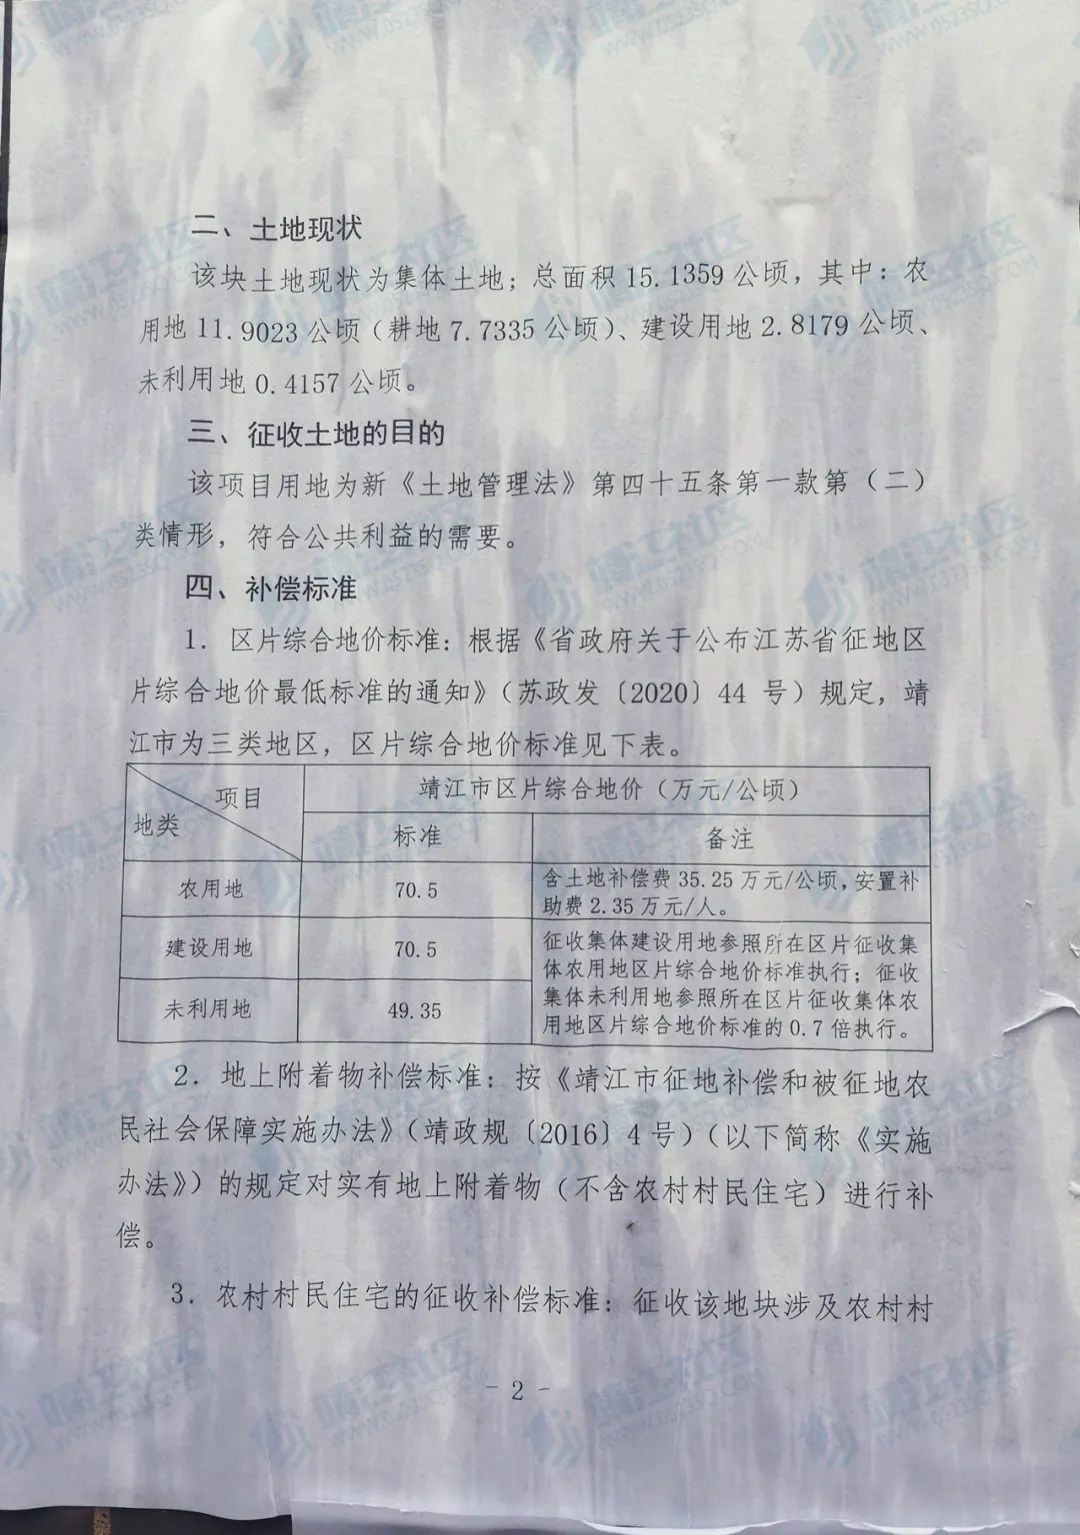 二、土地现状
该块土地现状为集体土地；总面积 15.1359 公顷，其中：农
用地 11.9023 公顷（耕地 7.7335 公顷）、建设用地 2.8179 公顷、
未利用地 0.4157 公顷。
三、征收土地的目的
该项目用地为新《土地管理法》第四十五条第一款第（二）
类情形，符合公共利益的需要。
四、补偿标准
1. 区片综合地价标准：根据《省政府关于公布江苏省征地区
片综合地价最低标准的通知》（苏政发〔2020〕44 号）规定，靖
江市为三类地区，区片综合地价标准见下表。
项目
地类
靖江市区片综合地价（万元/公顷）
标准
备注
农用地
70.5
含土地补偿费 35.25 万元/公顷，安置补
助费 2.35 万元/人。
建设用地
70.5
征收集体建设用地参照所在区片征收集
体农用地区片综合地价标准执行；征收
集体未利用地参照所在区片征收集体农
用地区片综合地价标准的 0.7 倍执行。
未利用地
49.35
2. 地上附着物补偿标准：按《靖江市征地补偿和被征地农
民社会保障实施办法》（靖政规〔2016〕4 号）（以下简称《实施
办法》）的规定对实有地上附着物（不含农村村民住宅）进行补
偿。
3. 农村村民住宅的征收补偿标准：征收该地块涉及农村村
- 2 -
靖江社区
WWW.0523SQ.COM